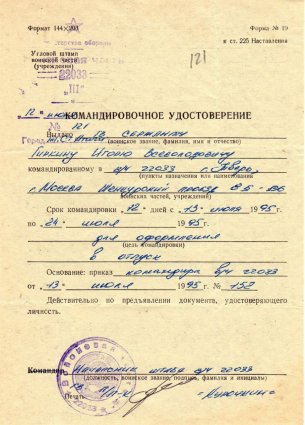 Формат 144×203
Форма № 19
к ст. 225 Наставления
Угловой штамп
воинской части
(учреждения)
22033
121
КОМАНДИРОВОЧНОЕ УДОСТОВЕРЕНИЕ
№ 121
Выдано сержанту
(воинское звание, фамилия, имя и отчество)
Гиркину Игорю Всеволодовичу
командированному в в/ч 22033
(пункты назначения или наименования
г. Москва
воинских частей, учреждений)
Срок командировки „12“ дней с „13“ июля 1995 г.
по „24“ июля 1995 г.
для оформления
(цель командировки)
в отпуск
Основание: приказ командира в/ч 22033
от „13“ июля 1995 г. № 152
Действительно по предъявлении документа, удостоверяющего
личность.
Командир Начальник штаба в/ч 22033
(должность, воинское звание, подпись, фамилия и инициалы)
Печать